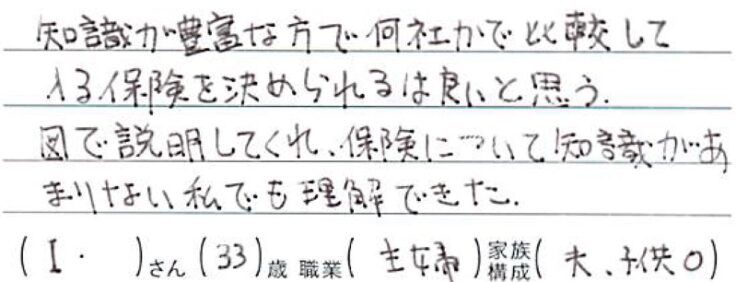 知識が豊富な方で何社かで比較して
入る保険を決められるは良いと思う.
図で説明してくれ、保険について知識があ
まりない私でも理解できた.
(I・　)さん(33)歳 職業(主婦)家族構成(夫、子供0)